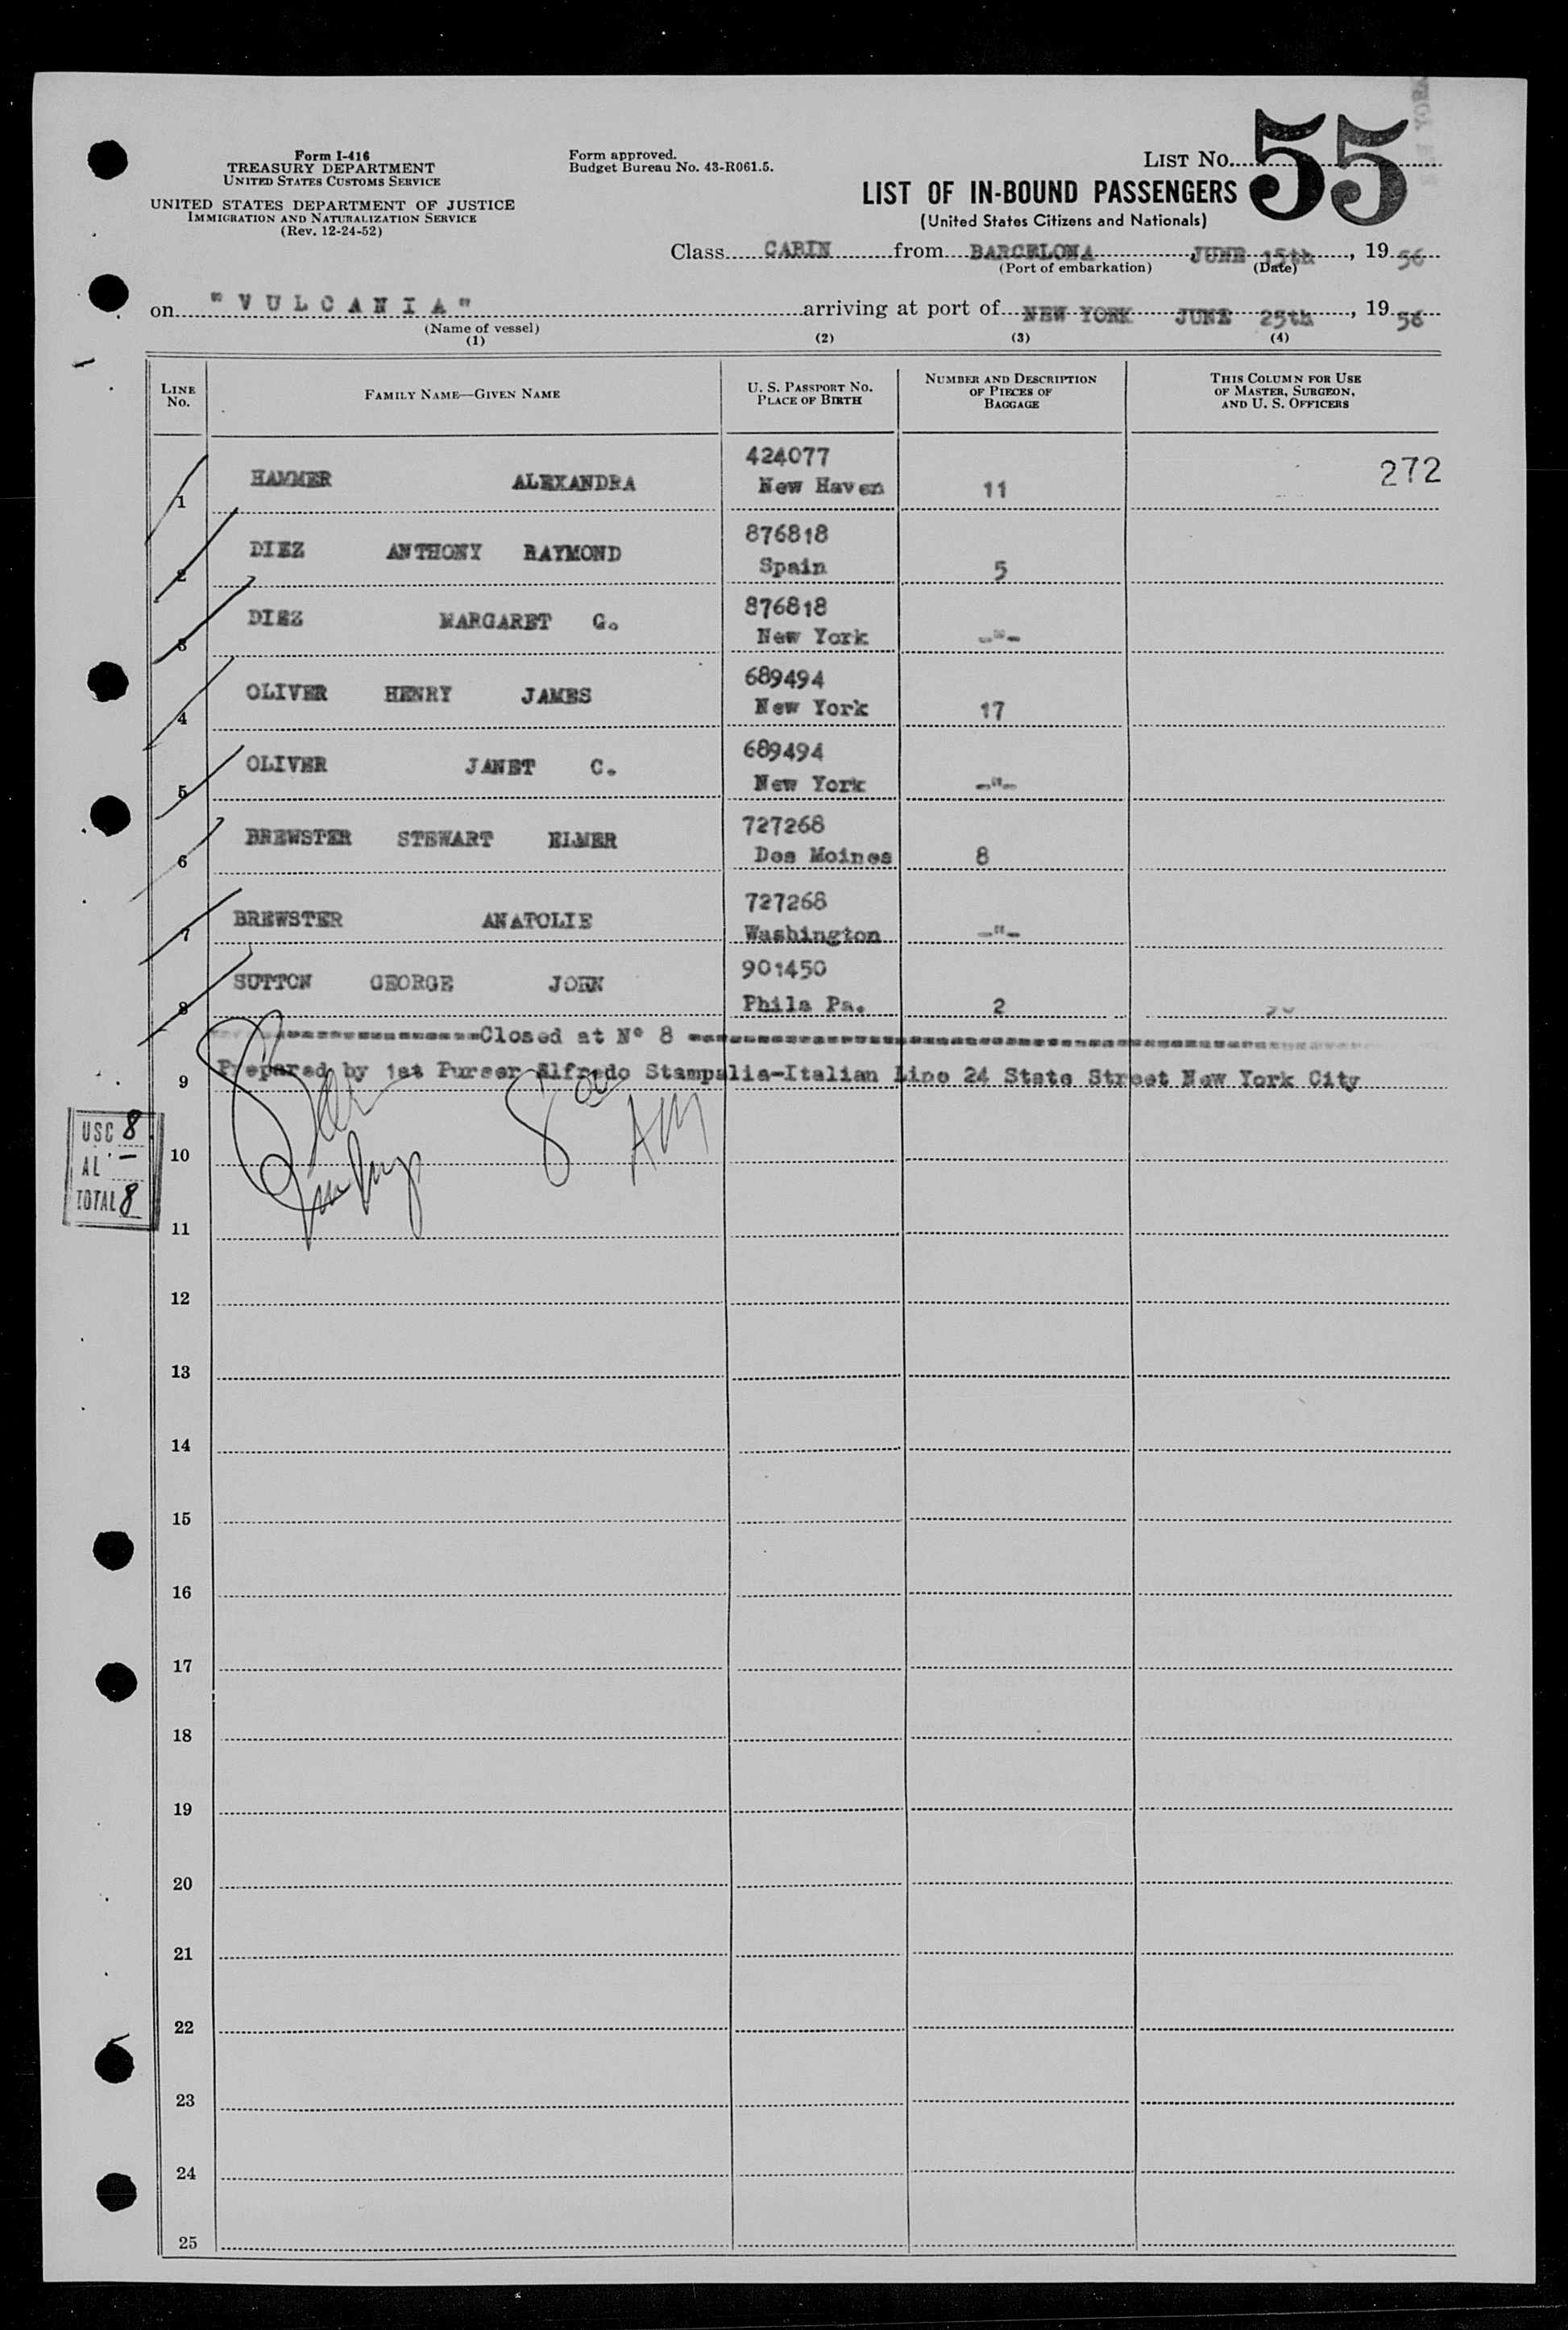 Form I-416
TREASURY DEPARTMENT
UNITED STATES CUSTOMS SERVICE
UNITED STATES DEPARTMENT OF JUSTICE
IMMIGRATION AND NATURALIZATION SERVICE
(Rev. 12-24-52)
Form approved.
Budget Bureau No. 43-R061.5.
LIST No. 55
LIST OF IN-BOUND PASSENGERS
(United States Citizens and Nationals)
Class CABIN from BARCELONA, JUNE 15th, 1956
(Port of embarkation) (Date)
on "VULCANIA" arriving at port of NEW YORK JUNE 25th, 1956
(Name of vessel)
(1) (2) (3) (4)
LINE No. FAMILY NAME—GIVEN NAME U. S. PASSPORT No. PLACE OF BIRTH NUMBER AND DESCRIPTION OF PIECES OF BAGGAGE THIS COLUMN FOR USE OF MASTER, SURGEON, AND U. S. OFFICERS
1 HAMMER ALEXANDRA 424077 New Haven 11 272
2 DIEZ ANTHONY RAYMOND 876818 Spain 5
3 DIEZ MARGARET G. 876818 New York -"-
4 OLIVER HENRY JAMES 689494 New York 17
5 OLIVER JANET C. 689494 New York -"-
6 BREWSTER STEWART ELMER 727268 Des Moines 8
7 BREWSTER ANATOLIE 727268 Washington -"-
8 SUTTON GEORGE JOHN 901450 Phila Pa. 2
Closed at Nº 8
9 Prepared by 1st Purser Alfredo Stampalia-Italian Line 24 State Street New York City
USC 8
AL —
TOTAL 8
10
11
12
13
14
15
16
17
18
19
20
21
22
23
24
25